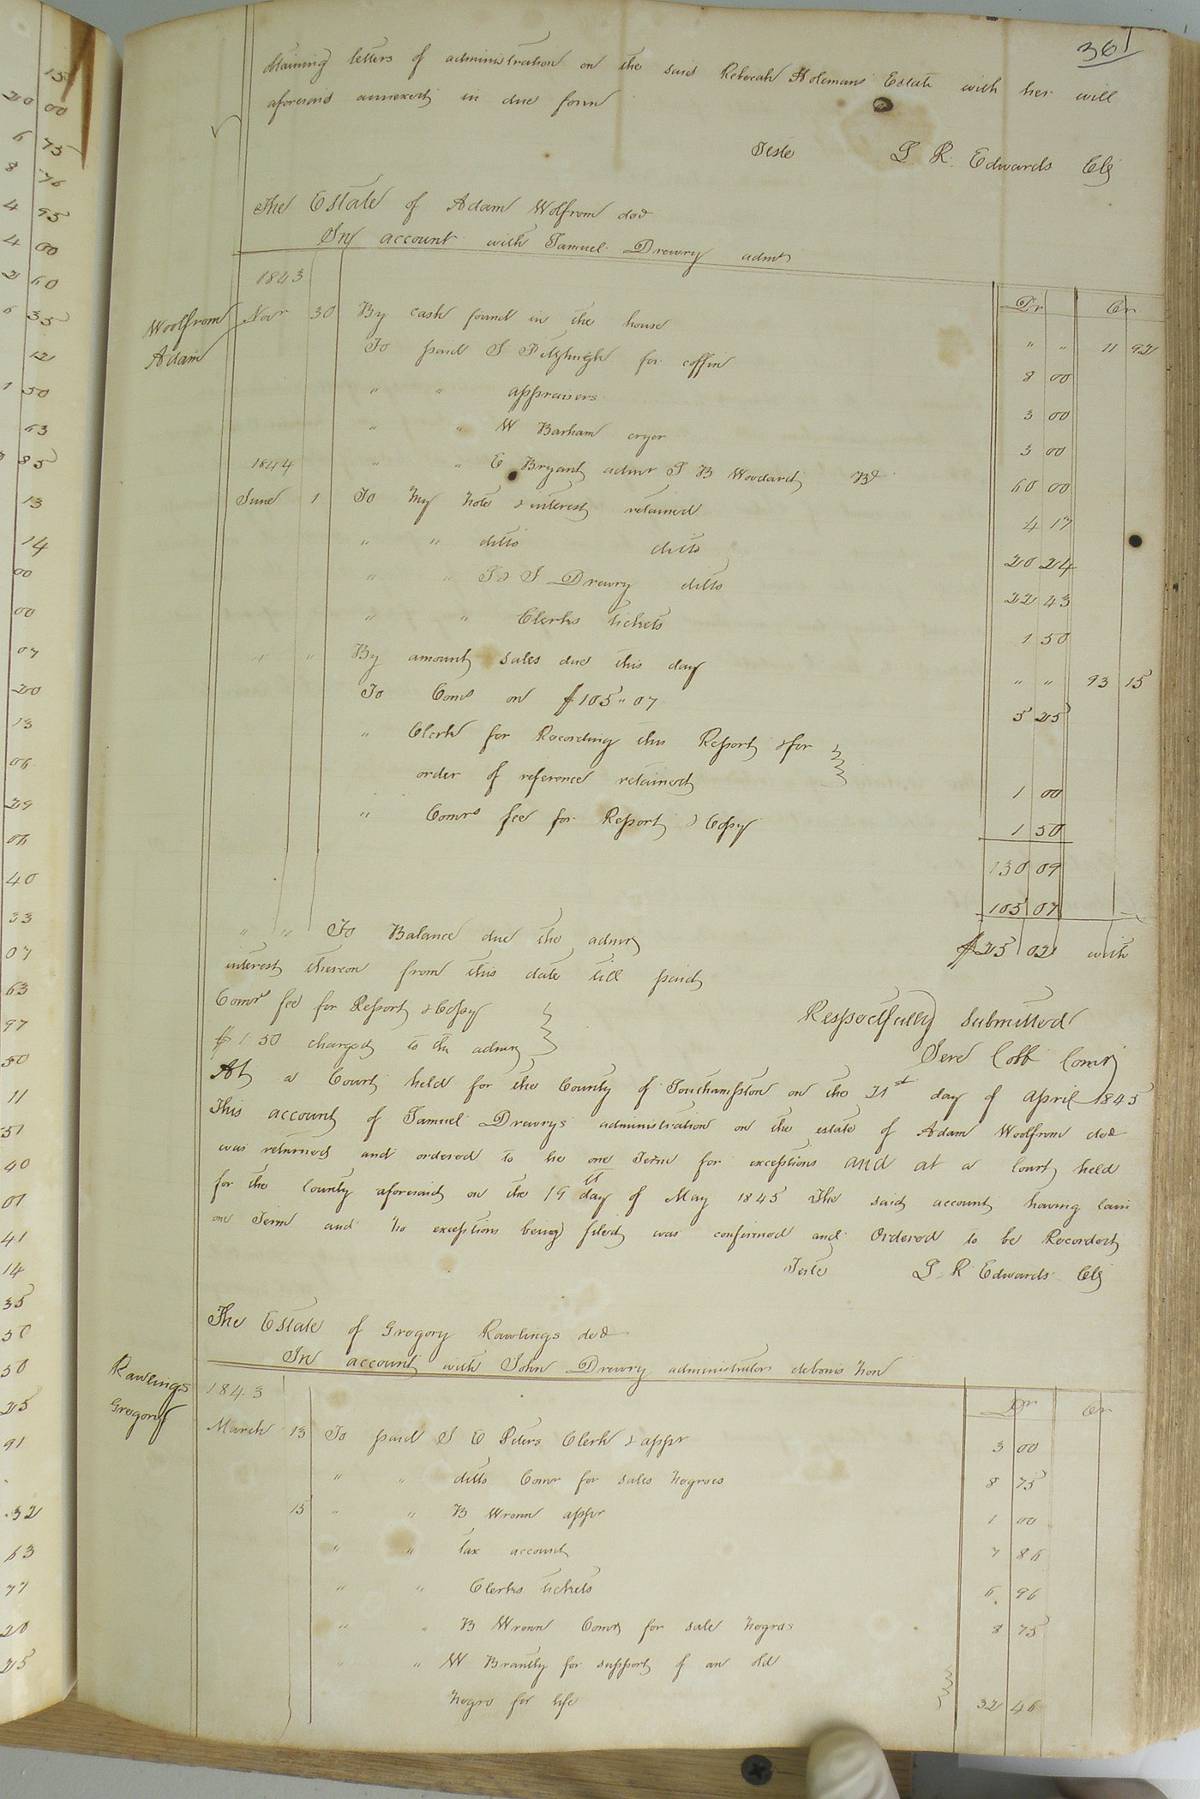 361
obtaining letters of administration on the said Rebecah Holemans Estate with her will
aforesaid annexed in due form
Teste L R. Edwards Clk
The Estate of Adam Wolfrom decd
In account with Samuel Drewry admr
Woolfrom
Adam
1843 Dr Cr
Novr 30 By cash found in the house " " 11 92
To paid S Fitzhugh for coffin 8 00
" " appraisers 3 00
" " W Barham cryer 3 00
1844 " " E Bryant admr T B Woodard 60 00
June 1 To My note & interest retained 4 17
" " ditto ditto 20 24
" " S Drewry ditto 22 43
" " Clerks tickets 1 50
" " By amount sales due this day " " 93 15
To Coms on $105"07 5 25
" Clerk for Recording this Report & for
order of reference retained 1 00
" Comrs fee for Report & Copy 1 50
130 09
105 07
" " To Balance due the admr $25 02 with
interest thereon from this date till paid
Comrs fee for Report & Copy
$1.50 charged to the admr
Respectfully submitted
Jere Cobb Comr
At a Court held for the County of Southampton on the 21st day of April 1845
This account of Samuel Drewrys administration on the estate of Adam Woolfrom decd
was returned and ordered to lie one Term for exceptions and at a Court held
for the County aforesaid on the 19th day of May 1845 The said account having lain
one Term and no exceptions being filed was confirmed and Ordered to be Recorded
Teste L R Edwards Clk
The Estate of Gregory Rawlings decd
In account with John Drewry administrator debonis non
Rawlings
Gregory
1843 Dr Cr
March 13 To paid S E Peters Clerk & appr 3 00
" " ditto Comr for sales negroes 8 75
15 " " B Wrenn appr 1 00
" " Tax account 7 86
" " Clerks tickets 6 96
" " B Wrenn Comr for sale negros 8 75
" " W Brantly for support of an old
negro for life 32 46